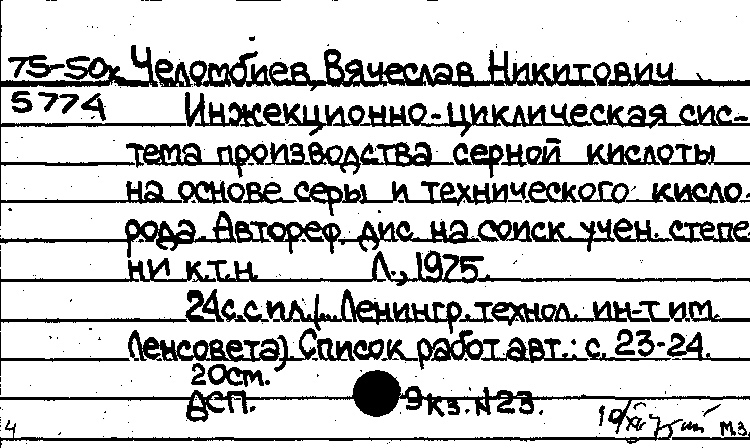 75-50х Челомбиев, Вячеслав Никитович
5774 Инжекционно-циклическая сис-
тема производства серной кислоты
на основе серы и технического кисло-
рода. Автореф. дис. на соиск. учен. степе-
ни к.т.н. Л., 1975.
24с. с ил. (Ленингр. технол. ин-т им.
Ленсовета) Список работ авт.: с. 23-24.
20см.
ДСП. Экз. N 23.
4 М.З.